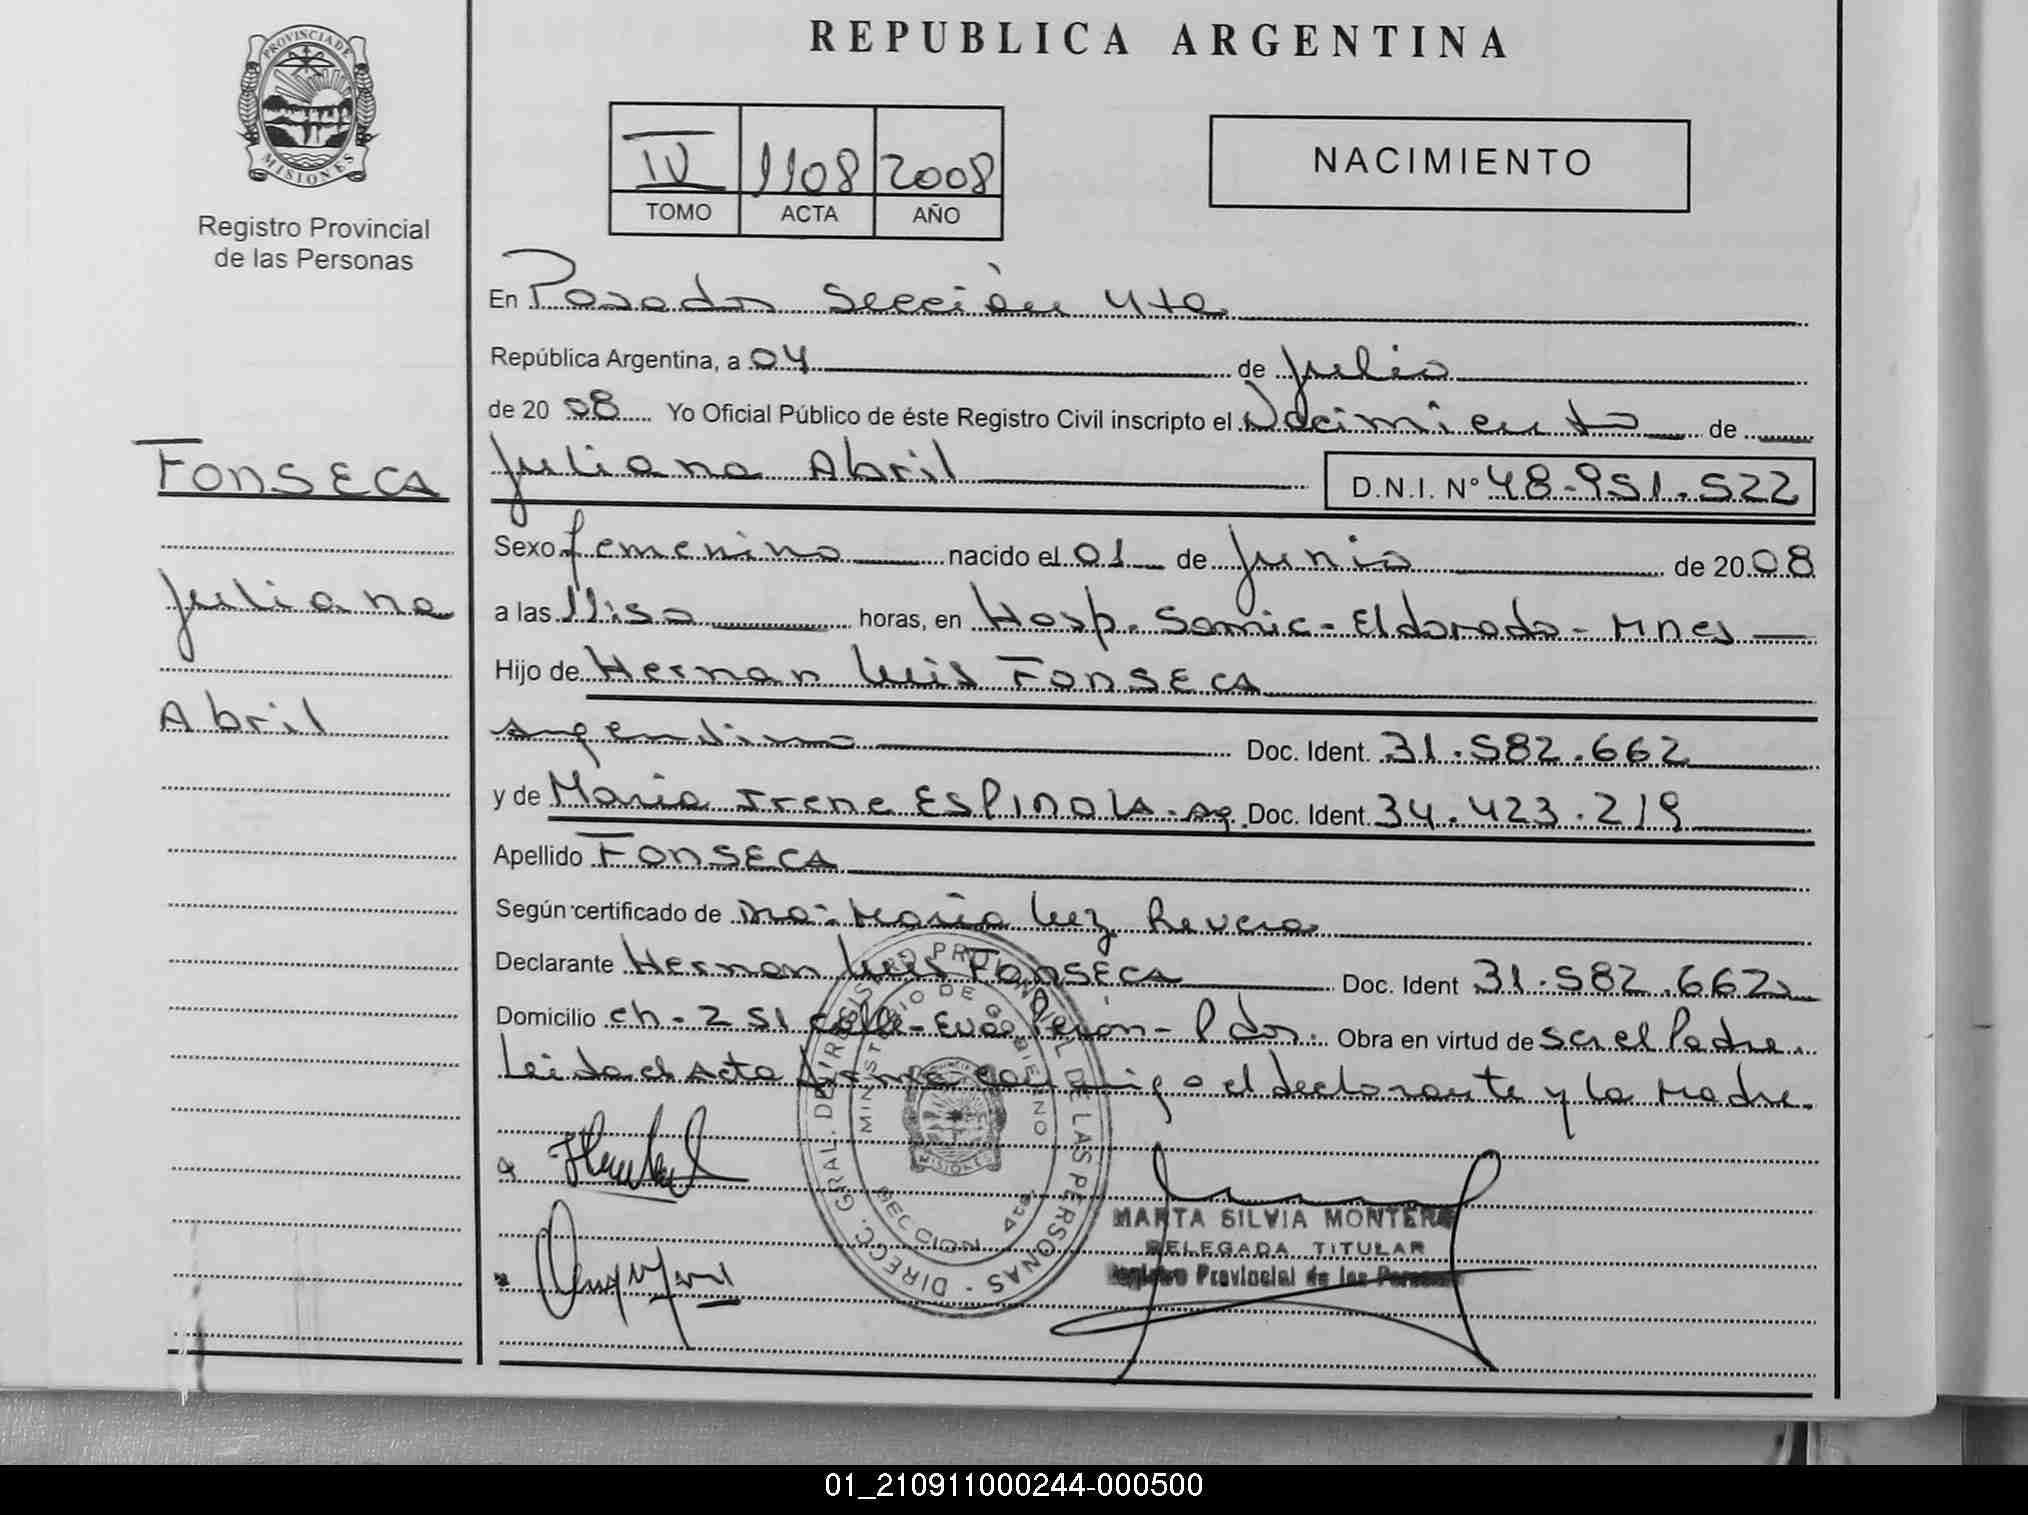 REPUBLICA ARGENTINA
PROVINCIA DE
MISIONES
Registro Provincial
de las Personas
IV 1108 2008
TOMO ACTA AÑO
NACIMIENTO
FONSECA
Juliana
Abril
En Posadas Sección 4ta
República Argentina, a 04 de Julio
de 2008 Yo Oficial Público de éste Registro Civil inscripto el Nacimiento de
Juliana Abril D.N.I. N° 48.951.522
Sexo femenino nacido el 01 de Junio de 2008
a las 11:50 horas, en Hosp. Samic - Eldorado - Mnes
Hijo de Hernan Luis FONSECA
argentino Doc. Ident. 31.582.662
y de Maria Irene ESPINOLA - Ag. Doc. Ident. 34.423.219
Apellido FONSECA
Según certificado de Dra. Maria Luz
Declarante Hernan Luis FONSECA Doc. Ident 31.582.662
Domicilio ch - 251 - Eva Perón - Pdas. Obra en virtud de ser el Padre.
Leida el Acta firma conmigo el declarante y la Madre.
DIRECC. GRAL. DE REGISTRO PROVINCIAL DE LAS PERSONAS -
MINISTERIO DE GOBIERNO
MISIONES
SECCION 4ta.
MARTA SILVIA
DELEGADA TITULAR
Registro Provincial de las Personas
01_210911000244-000500